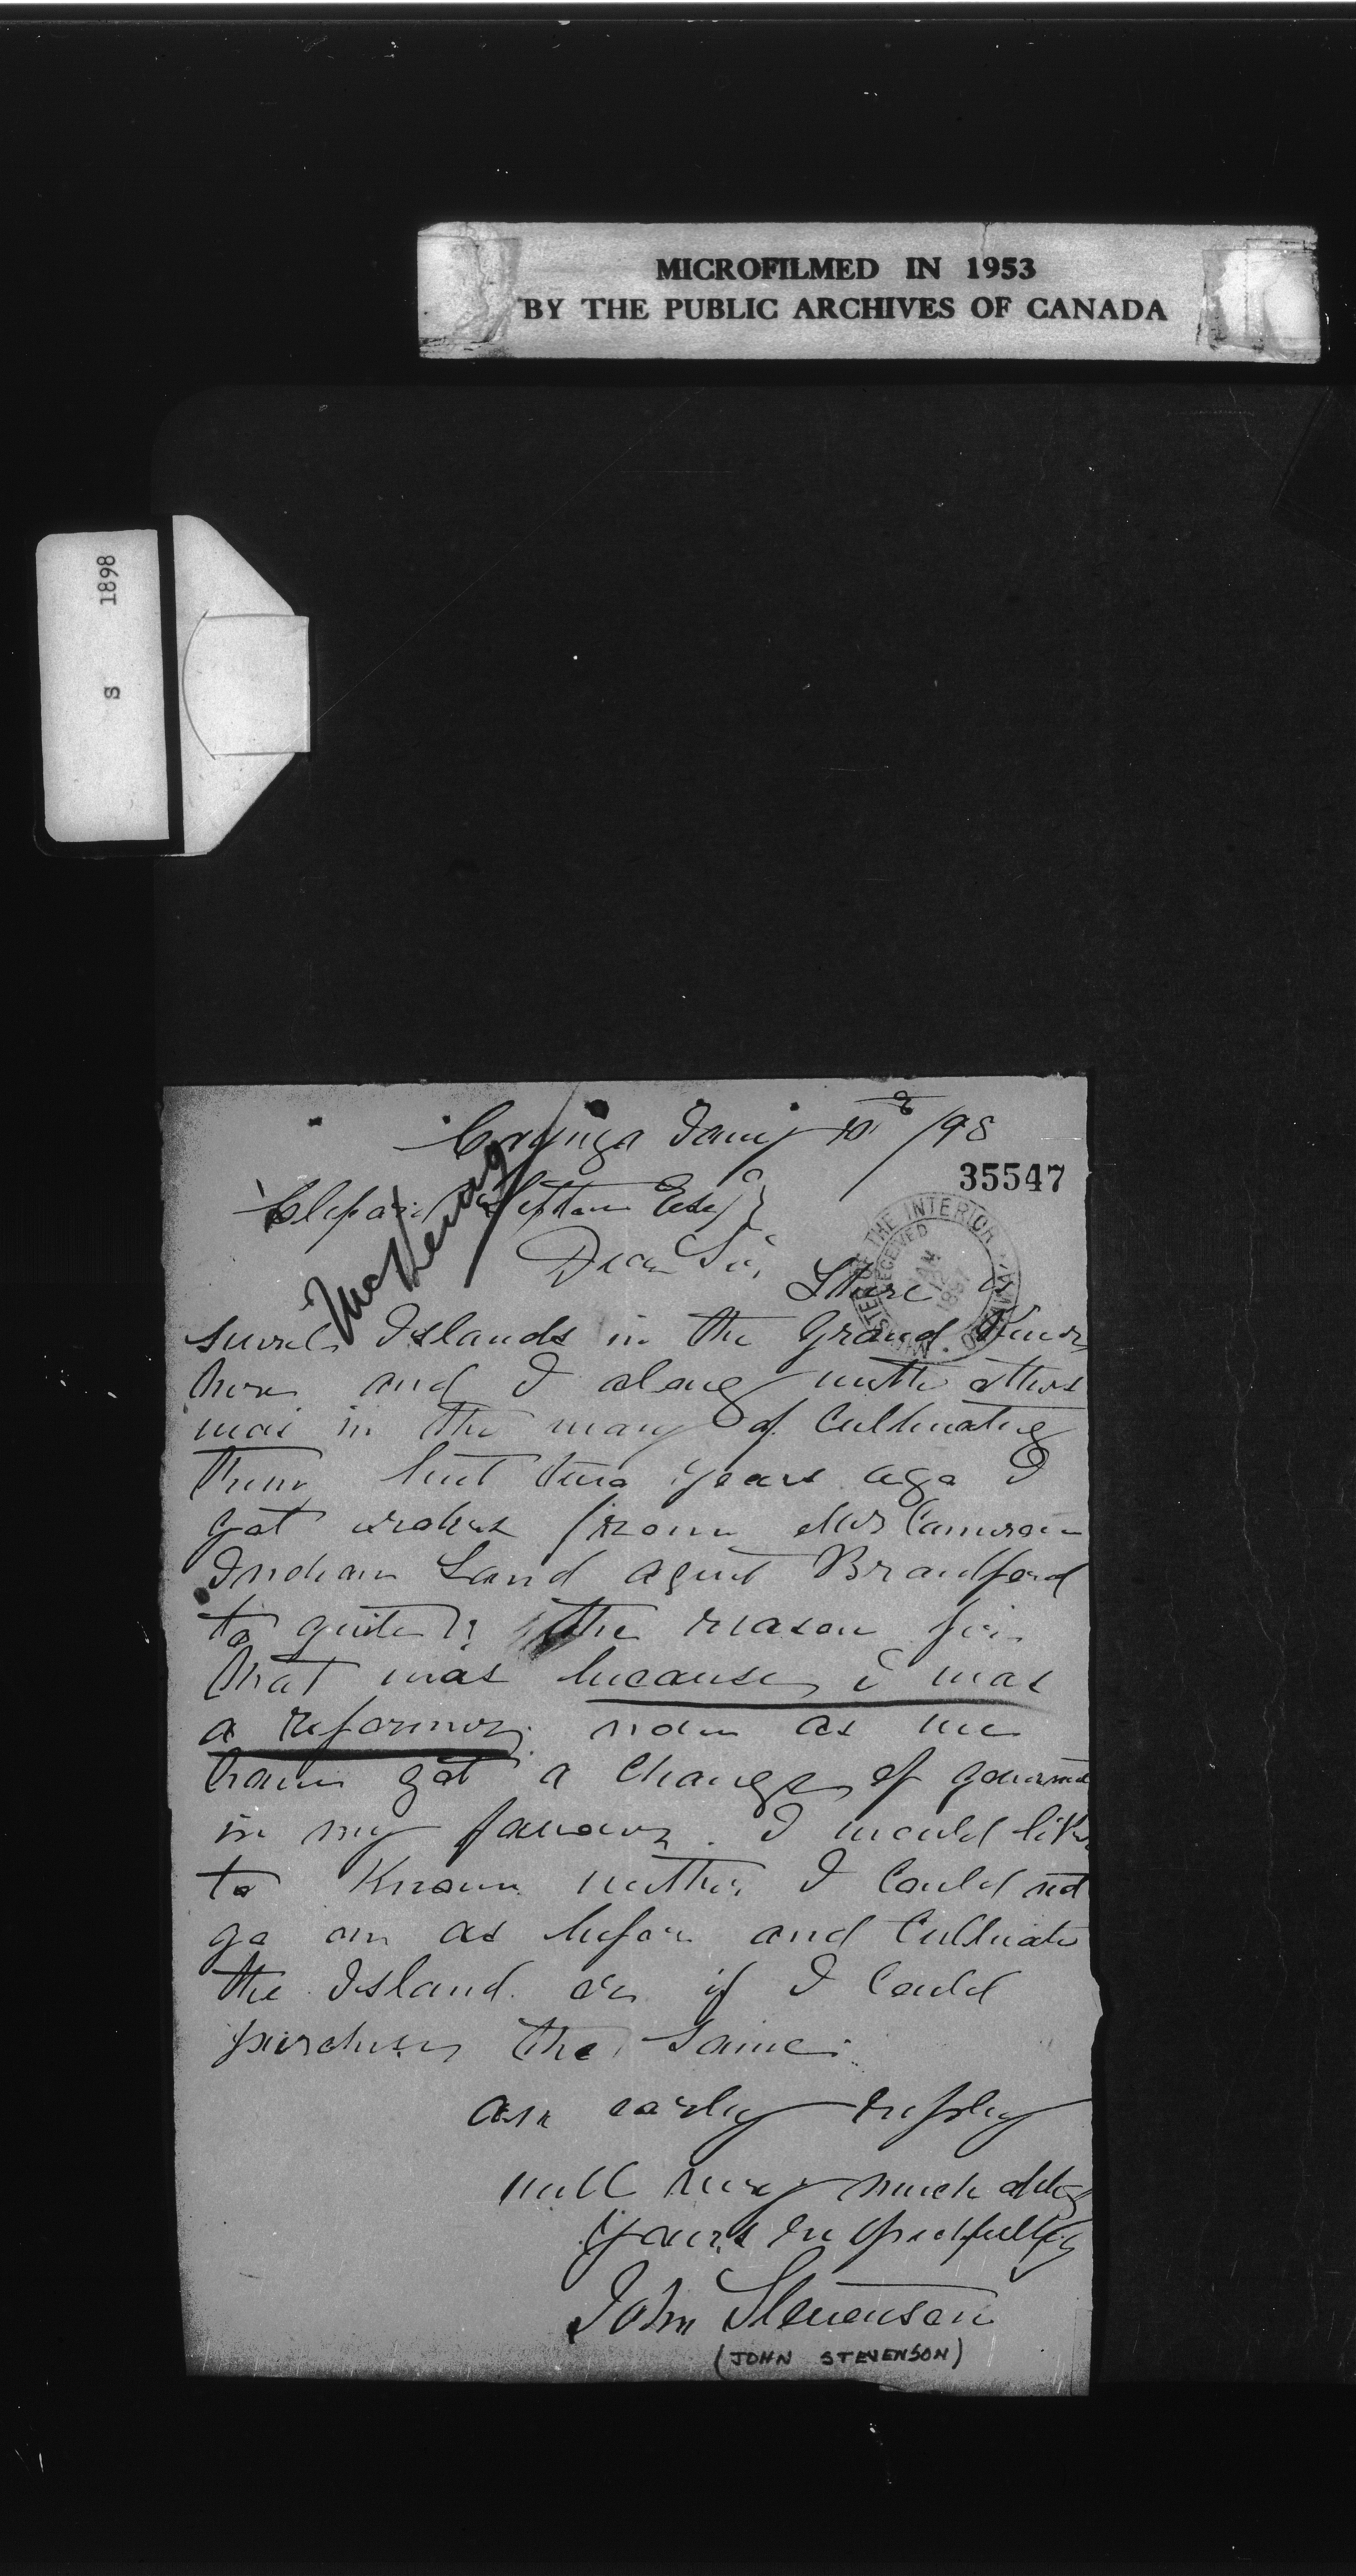 MICROFILMED IN 1953
BY THE PUBLIC ARCHIVES OF CANADA
S 1898
Cayuga Jany 10 /98
35547
Cliford Sifton Esq
McKenna
MINISTER OF THE INTERIOR OTTAWA
RECEIVED
JAN
Dear Sir,
There is
sevrel Islands in the Grand River
here and I along with others
was in the way of Cultivating
them but two years ago I
got orders from Mr Cameron
Indian Land agent Brantford
to quite the reason for
that was because i was
a reformer. now as we
have got a change of goverment
in my favour. I would like
to Know wether I Could not
go on as before and Cultivate
the Island. or if I Could
purchase the same.
an early reply
will very much oblige
yours respectfully
John Stevenson
(JOHN STEVENSON)